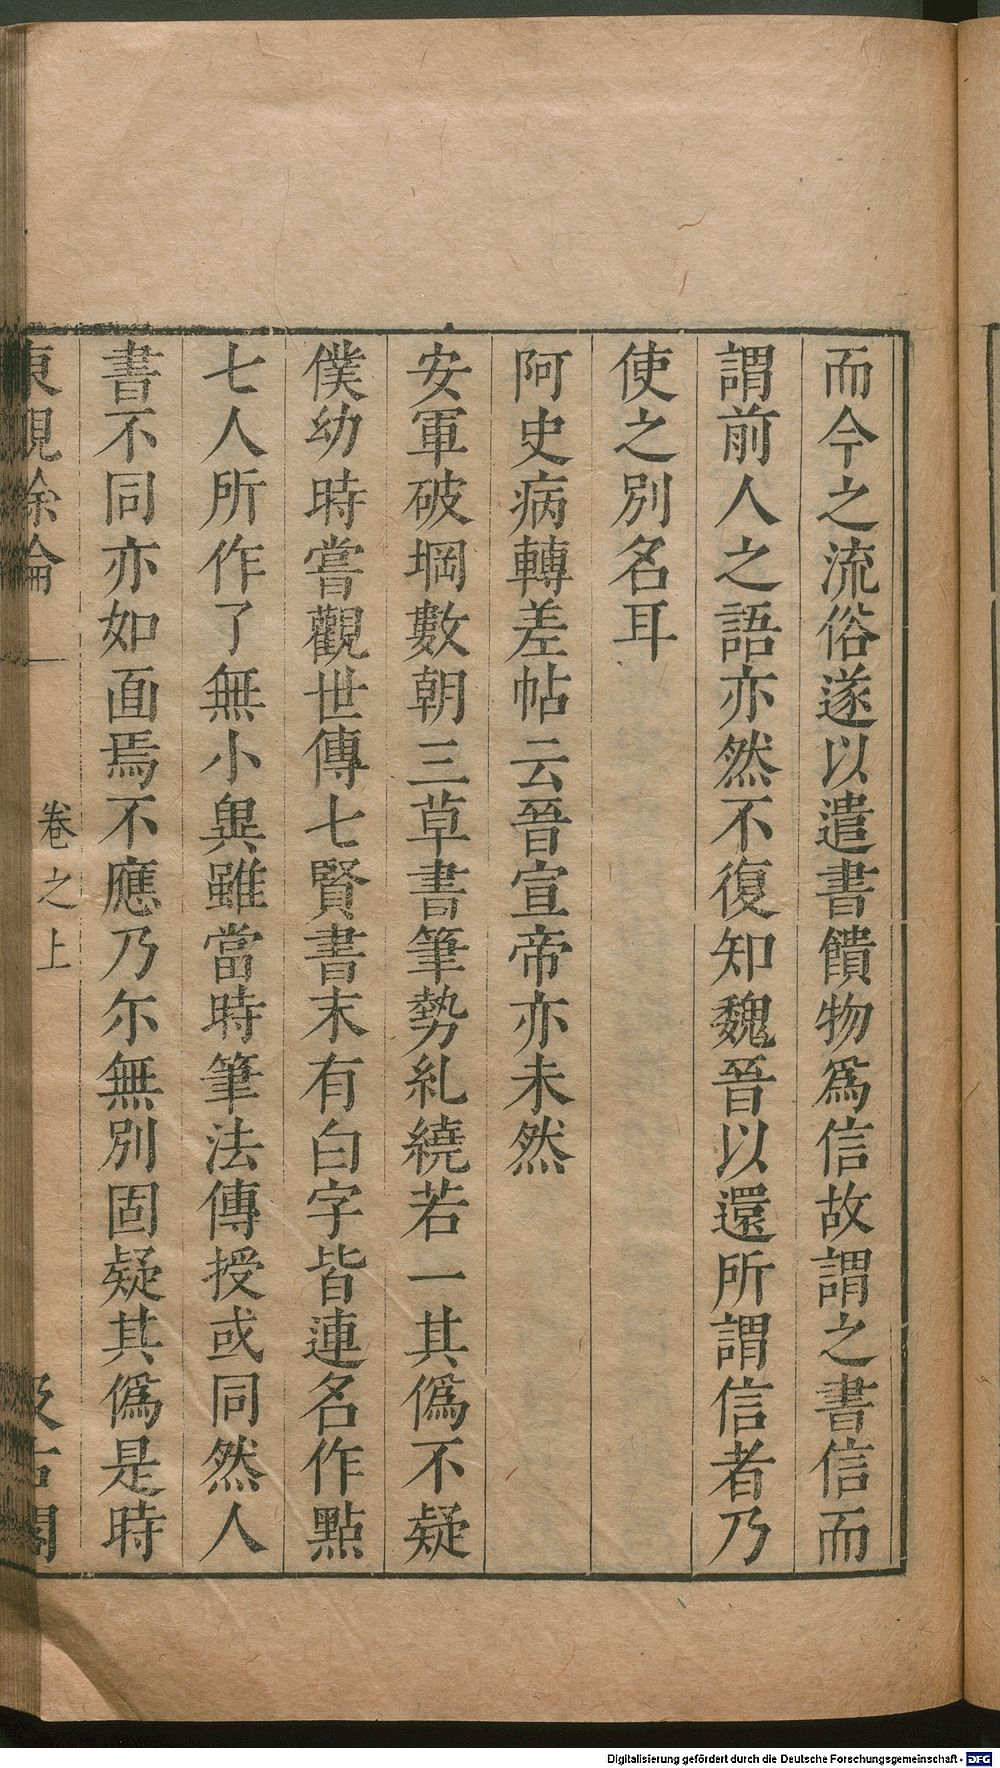 而今之流俗遂以遣書饋物爲信故謂之書信而
謂前人之語亦然不復知魏晉以還所謂信者乃
使之別名耳
阿史病轉差帖云晉宣帝亦未然
安軍破堈數朝三草書筆勢糺繞若一其僞不疑
僕幼時嘗觀世傳七賢書末有白字皆連名作點
七人所作了無小異雖當時筆法傳授或同然人
書不同亦如面焉不應乃尓無別固疑其僞是時
東觀餘論
卷之上
汲古閣
Digitalisierung gefördert durch die Deutsche Forschungsgemeinschaft - DFG